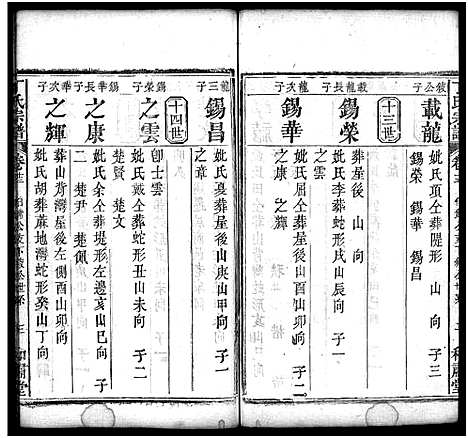 俊公子
載龍
妣氏項仝葬隄形 山 向 子三
錫榮 錫華 錫昌
十三世
載龍長子
錫榮
葬屋後 山 向
妣氏李葬蛇形 山 向 子一
之雲
龍次子
錫華
妣氏屈仝葬屋後山酉山卯向 子二
之康 之輝
龍三子
錫昌
妣氏夏葬屋後山庚山甲向 子一
之章
十四世
錫榮子
之雲
卽士雲
妣氏戴仝葬蛇形丑山未向 子二
楚賢 楚文
錫華長子
之康
妣氏余仝葬堤形左邊亥山巳向 子二
楚尹 楚佩
華次子
之輝
葬山背灣屋後左側酉山卯向
妣氏胡葬蔴地灣蛇形癸山丁向 子一
丁氏宗譜
三